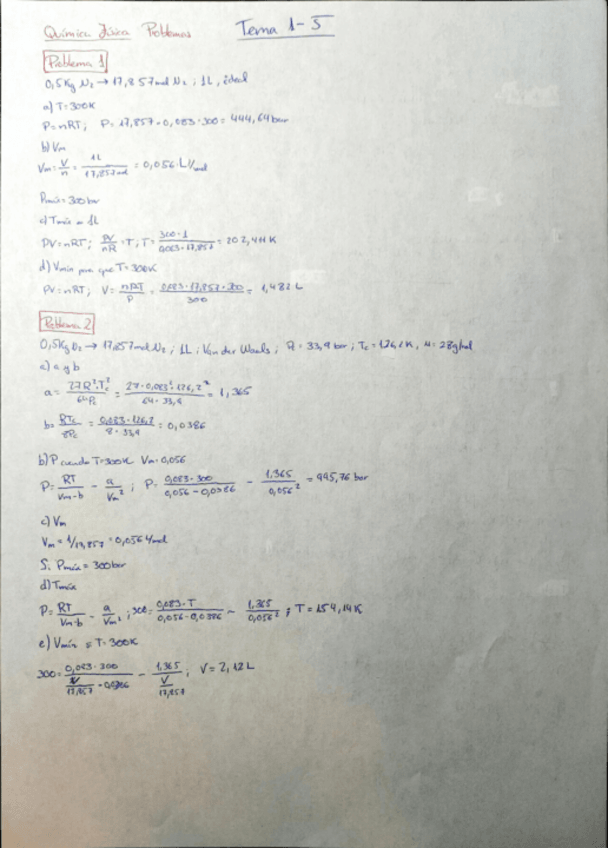 Química Física Problemas Tema 1-5
Problema 1
0,5Kg N₂ → 17,857mol N₂ ; 1L, ideal
a) T=300K
P=nRT; P= 17,857·0,083·300= 444,64bar
b) Vm
Vm= V/n = 1L/17,857mol = 0,056 L/mol
Pmáx=300bar
c) Tmáx = 1L
PV=nRT; PV/nR =T; T= 300·1/0,083·17,857 = 202,411K
d) Vmin para que T=300K
PV=nRT; V= nRT/P = 0,083·17,857·300/300 = 1,482 L
Problema 2
0,5Kg N₂ → 17,857mol N₂ ; 1L ; Van der Waals ; Pc= 33,9 bar ; Tc= 126,2K, M= 28g/mol
a) a y b
a= 27R²·Tc²/64Pc = 27·0,083²·126,2²/64·33,9 = 1,365
b= RTc/8Pc = 0,083·126,2/8·33,9 = 0,0386
b) P cuando T=300K Vm=0,056
P= RT/Vm-b - a/Vm² ; P= 0,083·300/0,056-0,0386 - 1,365/0,056² = 995,76 bar
c) Vm
Vm= 1/17,857 = 0,056 L/mol
Si Pmáx= 300bar
d) Tmáx
P= RT/Vm-b - a/Vm² ; 300= 0,083·T/0,056-0,0386 - 1,365/0,056² ; T=154,14K
e) Vmín si T=300K
300= 0,083·300/V/17,857 -0,0386 - 1,365/V/17,857 ; V= 2,12L